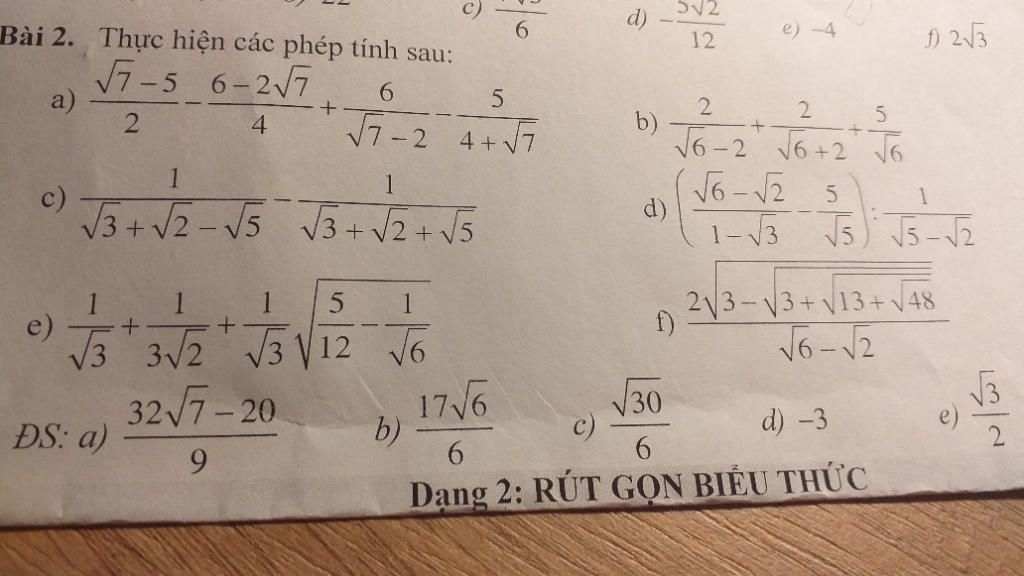 c) 6 d) −5√2/12 e) −4 f) 2√3
Bài 2. Thực hiện các phép tính sau:
a) (√7 − 5)/2 − (6 − 2√7)/4 + 6/(√7 − 2) − 5/(4 + √7) b) 2/(√6 − 2) + 2/(√6 + 2) + 5/√6
c) 1/(√3 + √2 − √5) − 1/(√3 + √2 + √5) d) ((√6 − √2)/(1 − √3) − 5/√5) : 1/(√5 − √2)
e) 1/√3 + 1/(3√2) + 1/√3 √(5/12 − 1/√6) f) 2√(3 − √(3 + √(13 + √48)))/(√6 − √2)
ĐS: a) (32√7 − 20)/9 b) 17√6/6 c) √30/6 d) −3 e) √3/2
Dạng 2: RÚT GỌN BIỂU THỨC